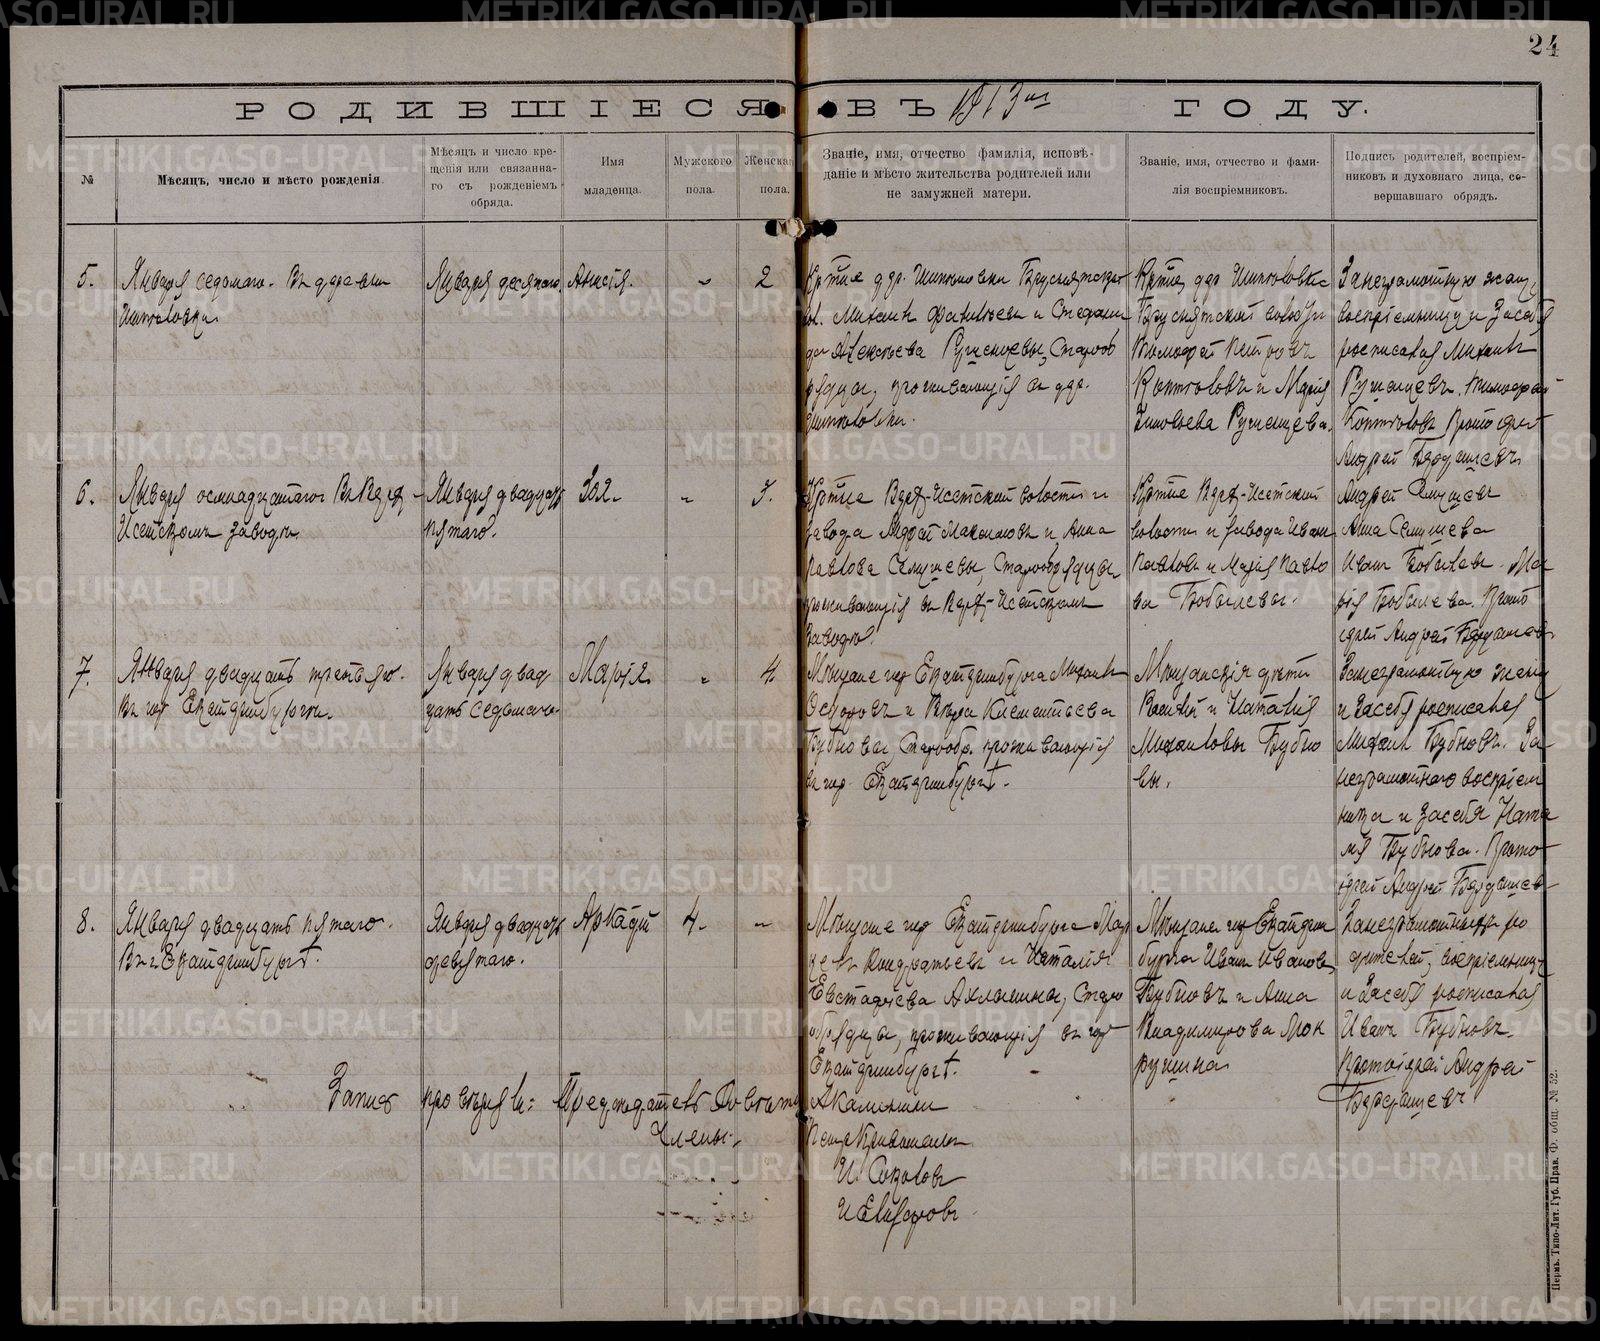 24
РОДИВШІЕСЯ ВЪ 1913 ГОДУ.
№
Мѣсяцъ, число и мѣсто рожденія.
Мѣсяцъ и число кре-
щенія или связанна-
го съ рожденіемъ
обряда.
Имя
младенца.
Мужского
пола.
Женска
пола.
Званіе, имя, отчество фамилія, исповѣ-
даніе и мѣсто жительства родителей или
не замужней матери.
Званіе, имя, отчество и фами-
лія воспріемниковъ.
Подпись родителей, воспріем-
никовъ и духовнаго лица, со-
вершавшаго обрядъ.
5.
Января седьмого. Въ деревни
Января десятаго
Анисія.
"
2
Кр-тне дер.
вол. Михаилъ и Степани
Алексѣева Старооб
рядцы, проживающія въ дер.
Кр-тне дер.
волости
Тимофей Петровъ
и Марія
Зиновьева
За неграмотную жену,
воспріемницу и за себя
росписался Михаилъ
Тимофей
Протоіерей
Андрей Бердышевъ
6.
Января осмнадцатаго Въ Верх-
Исетскомъ заводѣ
Января двадцать
пятаго.
Зоя.
"
3.
Кр-тне Верх-Исетской волости и
завода Андрей Максимовъ и Анна
Павлова Старообрядцы,
проживающія въ Верх-Исетскомъ
заводѣ.
Кр-тне Верх-Исетской
волости и завода Иванъ
Павловъ и Марія Павло
ва Бобылевы.
Андрей
Анна
Иванъ Бобылевъ. Ма
рія Бобылева. Прото
іерей Андрей Бердышевъ
7.
Января двадцать третьяго.
Въ гор Екатеринбургѣ.
Января двад
цать седьмого
Марія.
"
4.
Мѣщане гор Екатеринбурга Михаилъ
и Вѣра Клементьева
Бубновы Старообр. проживающія
въ гор. Екатеринбургѣ.
Мѣщанскія дѣти
Василій и Наталія
Михаиловы Бубно
вы.
За неграмотную жену
и за себя росписался
Михаилъ Бубновъ. За
неграмотнаго воспріем
ника и за себя Ната
лія Бубнова. Прото
іерей Андрей Бердышев
8.
Января двадцать пятаго.
Въ г Екатеринбургѣ.
Января двадцать
девятаго.
Аркадій
4.
"
Мѣщане гор Екатеринбурга Мар
келъ Кондратьевъ и Наталія
Евстафіева Ахлынины, Старо
обрядцы, проживающія въ гор
Екатеринбургѣ.
Мѣщане гор Екатерин
бурга Иванъ Ивановъ
Бубновъ и Анна
Владимирова Мок
рушина
За неграмотныхъ ро
дителей, воспріемницу
и за себя росписался
Иванъ Бубновъ.
Протоіерей Андрей
Бердышевъ
провѣряли: Предсѣдатель Совѣта
Члены:
И. Соколовъ
Пермь. Типо-Лит. Губ. Прав. Ф. общ. № 52.
METRIKI.GASO-URAL.RU